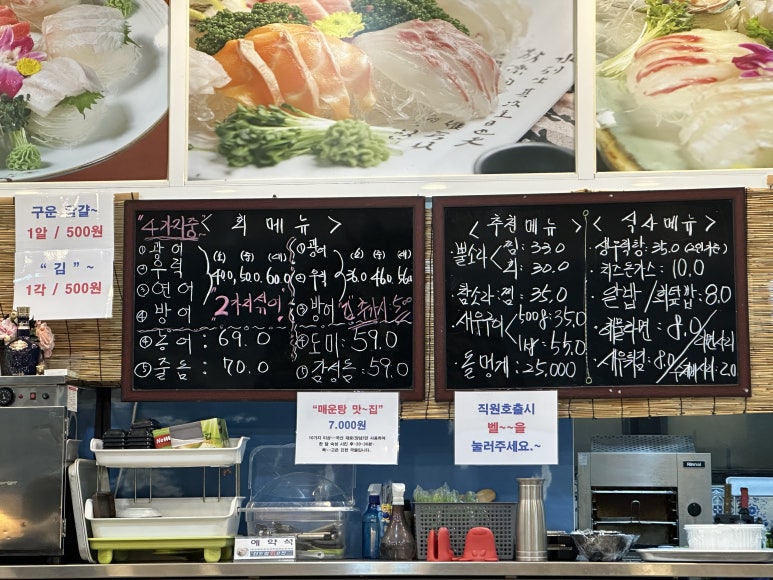 구운 달걀~
1알 / 500원
“ 김 ” ~
1각 / 500원
"4가지중"
< 회 메 뉴 >
① 광 어
② 우 럭
③ 연 어
④ 방 어
(소) (중) (대)
40.0, 50.0, 60.0
"2가지섞어!
① 광어
② 우럭
③ 방어
(소) (중) (대)
36.0 46.0 56.0
④ 농 어 : 69.0
⑤ 줄 돔 : 70.0
④ 도미 : 59.0
⑤ 감성돔 : 59.0
< 추천 메뉴 >
뿔소라
찜 : 33.0
회 : 30.0
참소라 : 찜 : 35.0
새우구이
500g : 35.0
1kg : 55.0
돌 멍게 : 25,000
< 식사 메뉴 >
· 생우럭탕 : 35.0
· 치즈돈가스 : 10.0
· 알밥 / 회덮밥 : 8.0
· 해물라면 : 8.0 / 라면사리
· 새우튀김 : 8.0 / 2.0
“매운탕 맛~집”
7.000원
직원호출시
벨~~을
눌러주세요.~
예 약 석
Rinnai